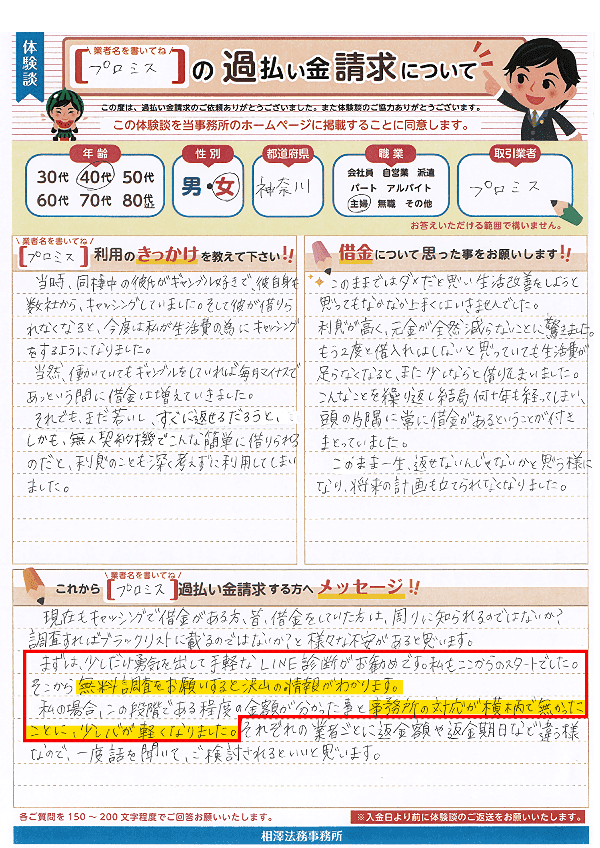 体験談
業者名を書いてね
[プロミス]の過払い金請求について
この度は、過払い金請求のご依頼ありがとうございました。また体験談のご協力ありがとうございます。
この体験談を当事務所のホームページに掲載することに同意します。
年齢
30代 40代 50代
60代 70代 80代以上
性別
男・女
都道府県
神奈川
職業
会社員 自営業 派遣
パート アルバイト
主婦 無職 その他
取引業者
プロミス
お答えいただける範囲で構いません。
業者名を書いてね
[プロミス]利用のきっかけを教えて下さい!!
当時、同棲中の彼氏がギャンブル好きで、彼自身も
数社から、キャッシングしていました。そして彼が借りら
れなくなると、今度は私が生活費の為にキャッシング
をするようになりました。
当然、働いていてもギャンブルをしていれば毎月マイナスで
あっという間に借金は増えていきました。
それでも、まだ若いし、すぐに返せるだろうと、
しかも、無人契約機でこんな簡単に借りられる
のだと、利息のことも深く考えずに利用してしまい
ました。
借金について思った事をお願いします!!
このままではダメだと思い生活改善をしようと
思ってもなかなか上手くはいきませんでした。
利息が高く、元金が全然減らないことに驚きました。
もう2度と借入れはしないと思っていても生活費が
足らなくなると、また少しならと借りてしまいました。
こんなことを繰り返し結局何十年も経ってしまい、
頭の片隅に常に借金があるということが付き
まとっていました。
このまま一生、返せないんじゃないかと思う様に
なり、将来の計画も立てられなくなりました。
業者名を書いてね
これから[プロミス]過払い金請求する方へメッセージ!!
現在もキャッシングで借金がある方、昔、借金をしていた方は、周りに知られるのではないか?
調査すればブラックリストに載るのではないか?と様々な不安があると思います。
まずは、少しだけ勇気を出して手軽なLINE診断がお勧めです。私もここからのスタートでした。
そこから無料調査をお願いすると沢山の情報がわかります。
私の場合、この段階である程度の金額が分かった事と事務所の対応が横柄で無かった
ことに、少し心が軽くなりました。それぞれの業者ごとに返金額や返金期日など違う様
なので、一度話を聞いて、ご検討されるといいと思います。
各ご質問を150～200文字程度でご回答お願いいたします。
※入金日より前に体験談のご返送をお願いいたします。
相澤法務事務所